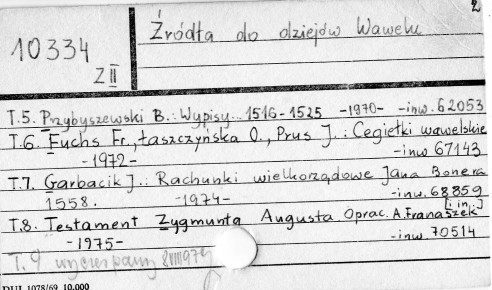 2
10334
Z II
Źródła do dziejów Wawelu
T.5. Przybyszewski B.: Wypisy... 1516-1525 -1970- -inw. 62053
T.6. Fuchs Fr., Łaszczyńska O., Prus J.: Cegiełki wawelskie
-1972- -inw 67143
T.7. Garbacik J.: Rachunki wielkorządowe Jana Bonera
1558. -1974- -inw. 68859
[i in.]
T.8. Testament Zygmunta Augusta Oprac. A. Franaszek
-1975- -inw 70514
T. 9 wyczerpany
DUJ 1078/69 10.000